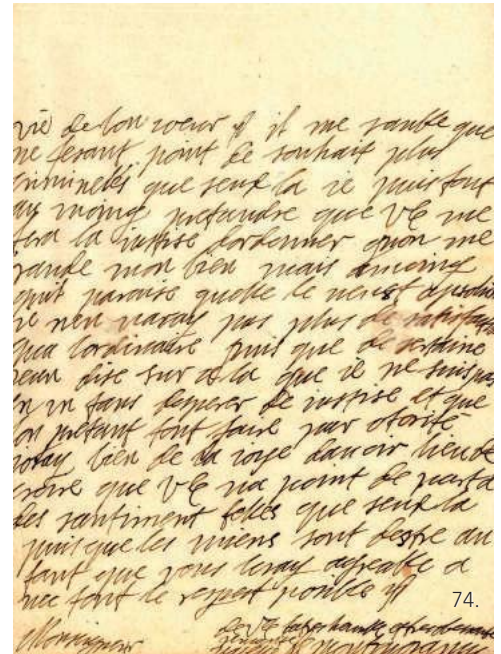 vie de bon cœur il me samble que
ne fesant point de souhait plus
criminelës que seux la ie puis tout
au moing pretandre que VE me
fera la iustise dordonner quon me
rande mon bien mais amoing
quil paraise quelle le veust
ie nen naray pas plus de satisfa
qua lordinaire puis que de sertaine
ieun dise sur sela que ie ne suis pas
en un tans desperer de iustise et que
lon pretant tout faire par otorité
ioray bien de la ioye dauoir lieu de
croire que VE na point de part a
des santiment telles que seux la
puisque les miens sont destre au
tant que vous loray agreable a
uec tout le respect posible
74.
Monseigneur
de VE la tres humble et tres obeisante